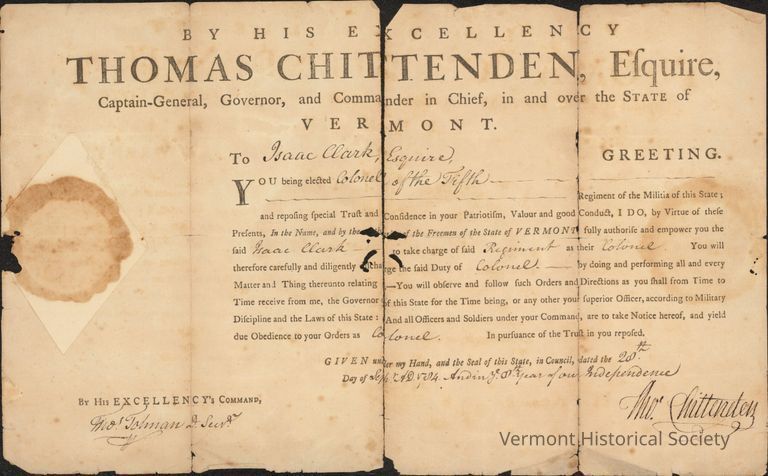 BY HIS EXCELLENCY
THOMAS CHITTENDEN, Eſquire,
Captain-General, Governor, and Commander in Chief, in and over the STATE of
VERMONT.
To Isaac Clark, Esquire, GREETING.
YOU being elected Colonel of the Fifth
Regiment of the Militia of this State;
and repoſing ſpecial Truſt and Confidence in your Patriotiſm, Valour and good Conduct, I DO, by Virtue of theſe
Preſents, In the Name, and by the of the Freemen of the State of VERMONT fully authoriſe and empower you the
ſaid Isaac Clark to take charge of ſaid Regiment as their Colonel. You will
therefore carefully and diligently the ſaid Duty of Colonel. by doing and performing all and every
Matter and Thing thereunto relating.—You will obſerve and follow ſuch Orders and Directions as you ſhall from Time to
Time receive from me, the Governor of this State for the Time being, or any other your ſuperior Officer, according to Military
Diſcipline and the Laws of this State: And all Officers and Soldiers under your Command, are to take Notice hereof, and yield
due Obedience to your Orders as Colonel. In purſuance of the Truſt in you repoſed.
GIVEN under my Hand, and the Seal of this State, in Council, dated the 28th
Day of Sept. AD 1784. And in ye 8th year of our Independence
BY HIS EXCELLENCY's COMMAND,
Thos Chittenden
Thos Tolman Dt Secry
Vermont Historical Society